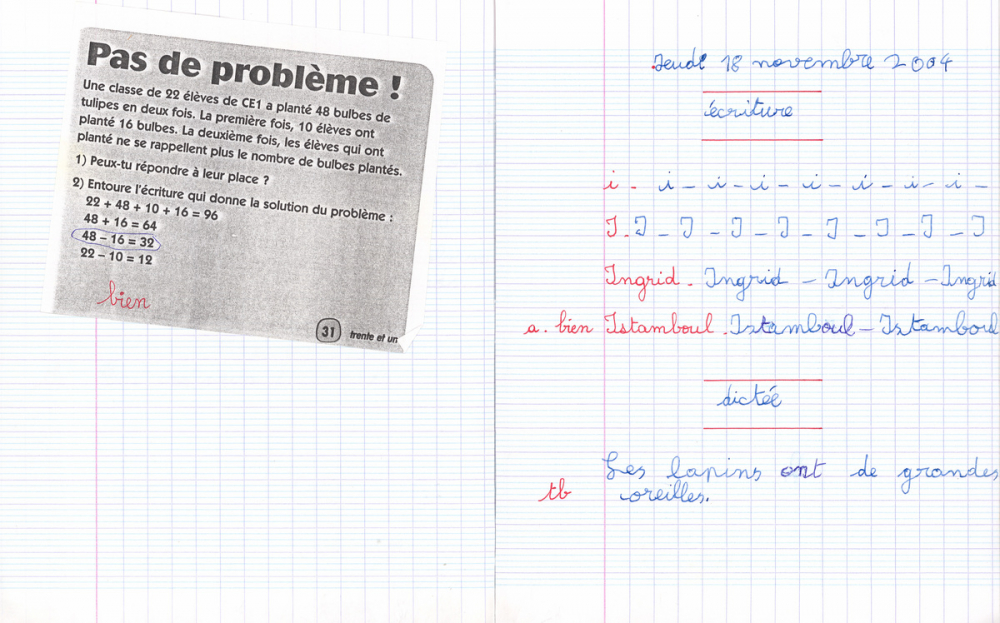 Pas de problème !
Une classe de 22 élèves de CE1 a planté 48 bulbes de
tulipes en deux fois. La première fois, 10 élèves ont
planté 16 bulbes. La deuxième fois, les élèves qui ont
planté ne se rappellent plus le nombre de bulbes plantés.
1) Peux-tu répondre à leur place ?
2) Entoure l'écriture qui donne la solution du problème :
22 + 48 + 10 + 16 = 96
48 + 16 = 64
48 – 16 = 32
22 – 10 = 12
bien
31 trente et un
Jeudi 18 novembre 2004
écriture
i - i - i - i - i - i - i - i -
I - I - I - I - I - I - I - I - I
Ingrid - Ingrid - Ingrid - Ingrid
a. bien Istamboul - Istamboul - Istamboul
dictée
Les lapins ont de grandes
tb oreilles.